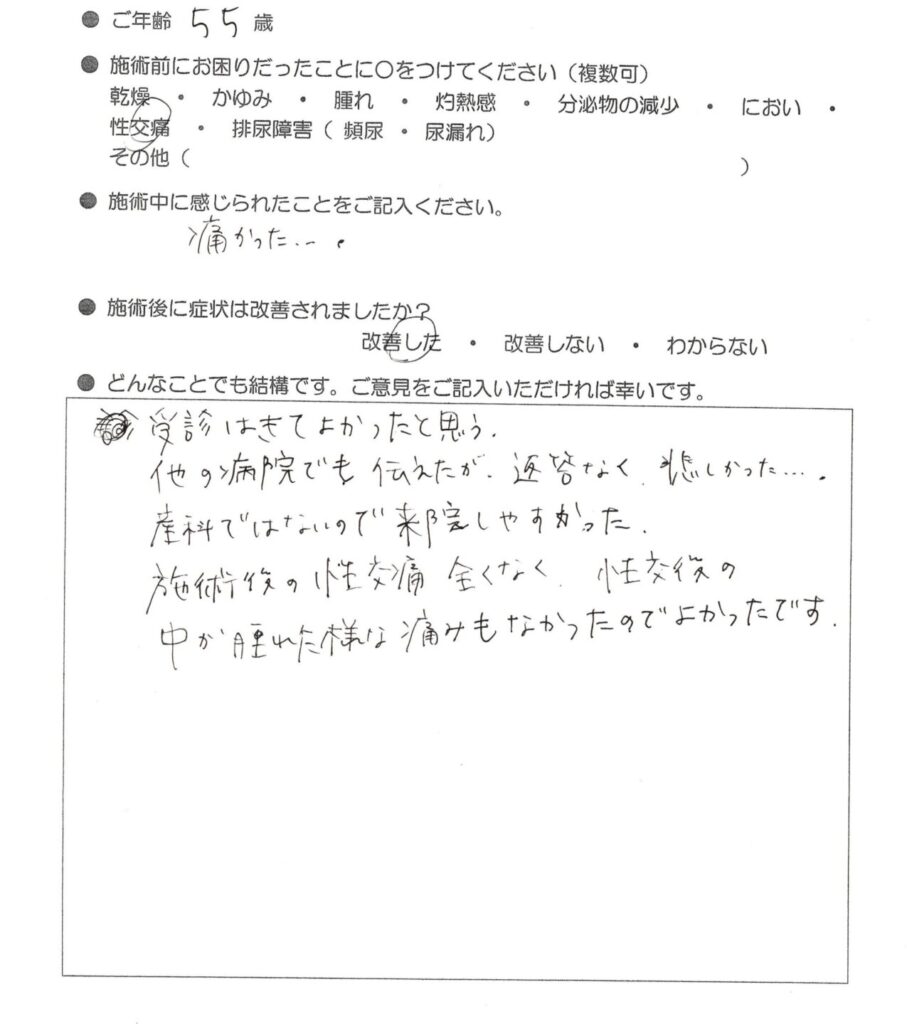 ● ご年齢 55 歳
● 施術前にお困りだったことに〇をつけてください（複数可）
乾燥 ・ かゆみ ・ 腫れ ・ 灼熱感 ・ 分泌物の減少 ・ におい ・
性交痛 ・ 排尿障害（ 頻尿 ・ 尿漏れ）
その他（ ）
● 施術中に感じられたことをご記入ください。
痛かった…。
● 施術後に症状は改善されましたか？
改善した ・ 改善しない ・ わからない
● どんなことでも結構です。ご意見をご記入いただければ幸いです。
受診はきてよかったと思う.
他の病院でも伝えたが、返答なく、悲しかった….
産科ではないので来院しやすかった.
施術後の性交痛 全くなく、性交後の
中が腫れた様な痛みもなかったのでよかったです.